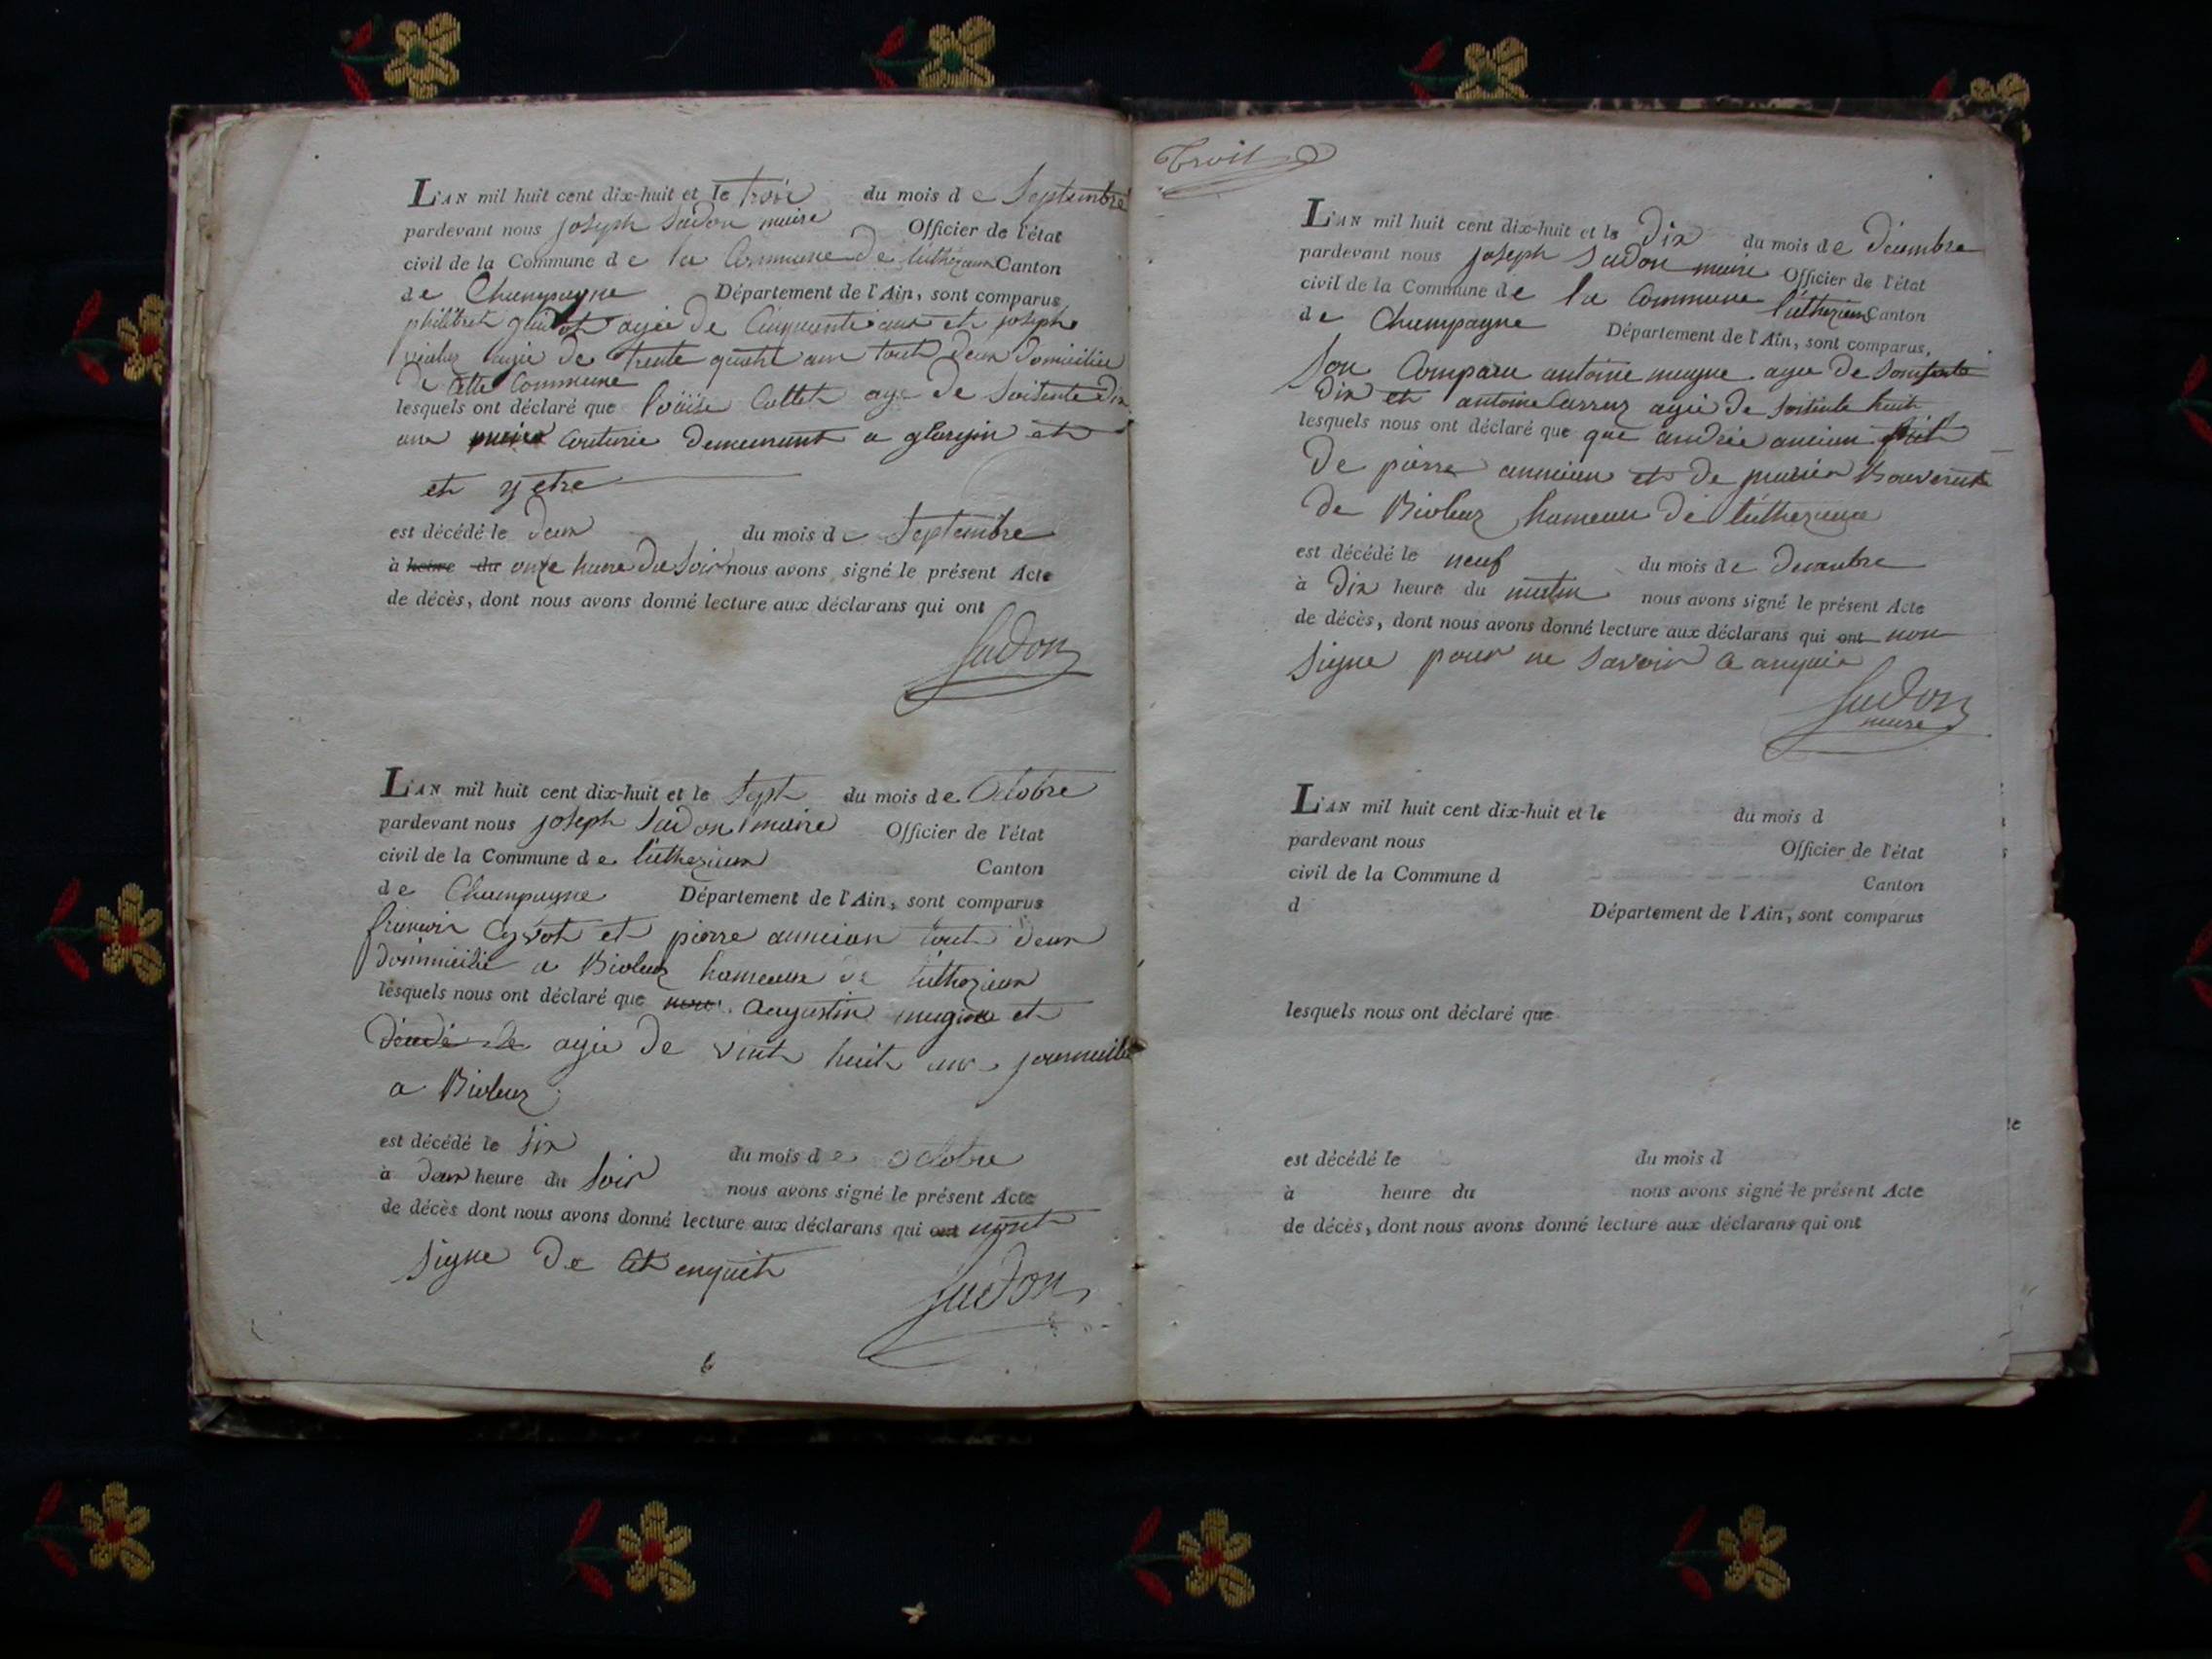 L'AN mil huit cent dix-huit et le trois du mois de Septembre
pardevant nous joseph Sudon maire Officier de l'état
civil de la Commune de la Commune de luthezieu Canton
de Champagne Département de l'Ain, sont comparus
philibert agée de Cinquente ans et joseph
agée de trente quatre ans tout deux domicilié
de Cette Commune
lesquels ont déclaré que Collet age de Soisente Dix
ans Couturie demeurant a glargin et
et y etre
est décédé le deux du mois de Septembre
à heure du onze heure du Soir nous avons signé le présent Acte
de décès, dont nous avons donné lecture aux déclarans qui ont
Sudon
L'AN mil huit cent dix-huit et le Sept du mois de Octobre
pardevant nous joseph Sudon maire Officier de l'état
civil de la Commune de luthezieu Canton
de Champagne Département de l'Ain, sont comparus
et pierre anncian tout deux
dommicilié a Bioleaz hameaux de luthezieu
lesquels nous ont déclaré que Augustin mugnie et
décédé le agée de vint huit ans journailié
a Bioleaz
est décédé le Six du mois de octobre
à deux heure du Soir nous avons signé le présent Acte
de décès dont nous avons donné lecture aux déclarans qui ont nont
Signe de Ce enquit
Sudon
Troit
L'AN mil huit cent dix-huit et le Dix du mois de décembre
pardevant nous joseph Sudon maire Officier de l'état
civil de la Commune de la Commune luthezieu Canton
de Champagne Département de l'Ain, sont comparus,
Son Comparu antoine mugne agée de Soissente
Dix et antoine agée de Soisente huit
lesquels nous ont déclaré que que andrée ancian
de pierre anncian et de
de Bioleaz hameau de luthezieu
est décédé le neuf du mois de Decembre
à Dix heure du matin nous avons signé le présent Acte
de décès, dont nous avons donné lecture aux déclarans qui ont non
Signe pour ne Savoir a anquis
Sudon
maire
L'AN mil huit cent dix-huit et le du mois d
pardevant nous Officier de l'état
civil de la Commune d Canton
d Département de l'Ain, sont comparus
lesquels nous ont déclaré que
est décédé le du mois d
à heure du nous avons signé le présent Acte
de décès, dont nous avons donné lecture aux déclarans qui ont